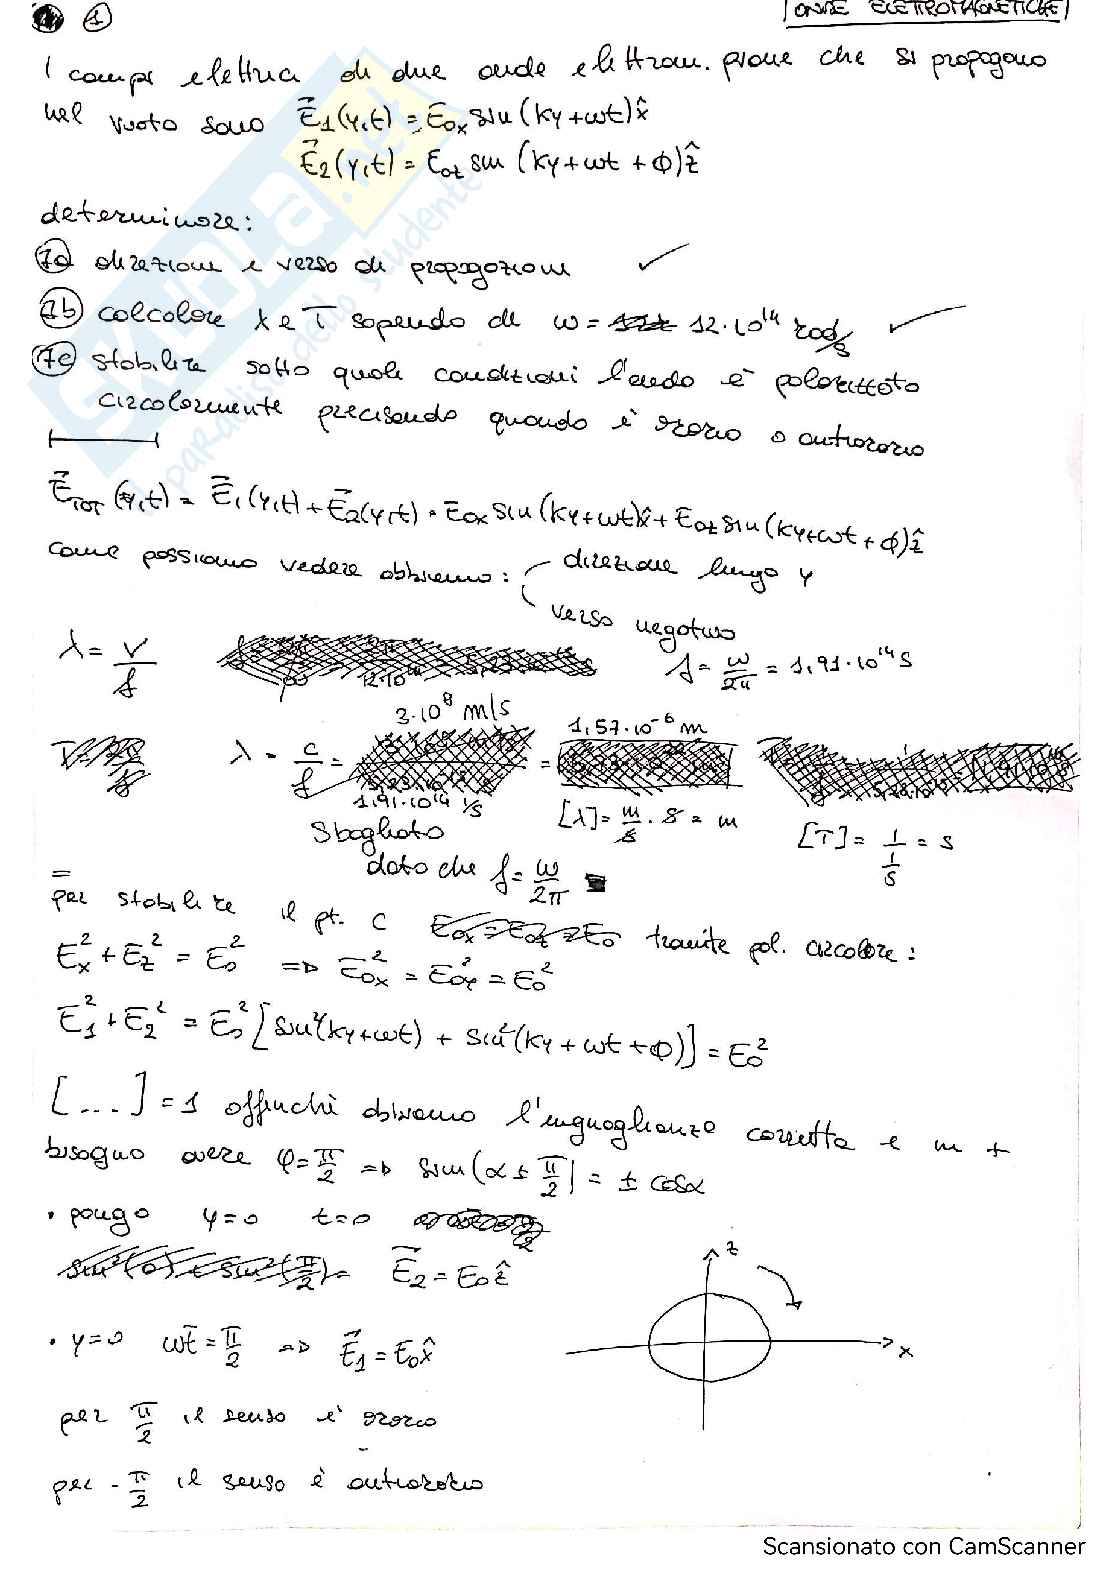 1 ONDE ELETTROMAGNETICHE
I campi elettrici di due onde elettrom. piane che si propagano
nel vuoto sono E⃗1(y,t) = E0x sin(ky+ωt)x̂
E⃗2(y,t) = E0z sin(ky+ωt+ϕ)ẑ
determinare:
1a direzione e verso di propagazione ✓
1b calcolare λ e T sapendo di ω= 12·10^14 rad/s ✓
1c stabilire sotto quali condizioni l'onda è polarizzata
circolarmente precisando quando è orario o antiorario
E⃗TOT(y,t) = E⃗1(y,t) + E⃗2(y,t) = E0x sin(ky+ωt)x̂ + E0z sin(ky+ωt+ϕ)ẑ
come possiamo vedere abbiamo: direzione lungo y
verso negativo
λ= v/f f= ω/2π = 1,91·10^14 s
λ = c/f = 3·10^8 m/s / 1,91·10^14 1/s = 1,57·10^-6 m
[λ]= m/s · s = m [T]= 1/(1/s) = s
Sbagliato
dato che f= ω/2π
per stabilire il pt. c tramite pol. circolare:
Ex² + Ez² = E0² => E0x² = E0y² = E0²
E1² + E2² = E0² [sin²(ky+ωt) + sin²(ky+ωt+ϕ)] = E0²
[...] = 1 affinchè abbiamo l'enguaglianza corretta e in +
bisogno avere φ= π/2 => sin(α ± π/2) = ± cosα
• pongo y=0 t=0
E⃗2 = E0 ẑ
• y=0 ωt̄ = π/2 => E⃗1 = E0x̂
z
x
per π/2 il senso è orario
per - π/2 il senso è antiorario
SKUOLA.net
paradiso dello studente
Scansionato con CamScanner